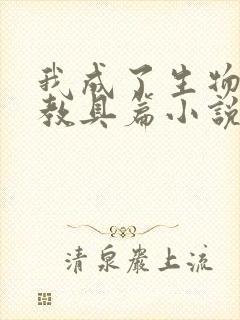 我成了生物
教具篇小說
清泉巖上流